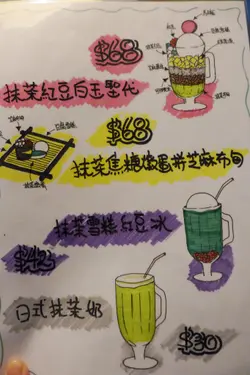 $68
抹茶紅豆白玉聖代
$68
抹茶焦糖燉蛋拼芝麻布甸
抹茶雪糕紅豆冰
$42
日式抹茶奶
$30